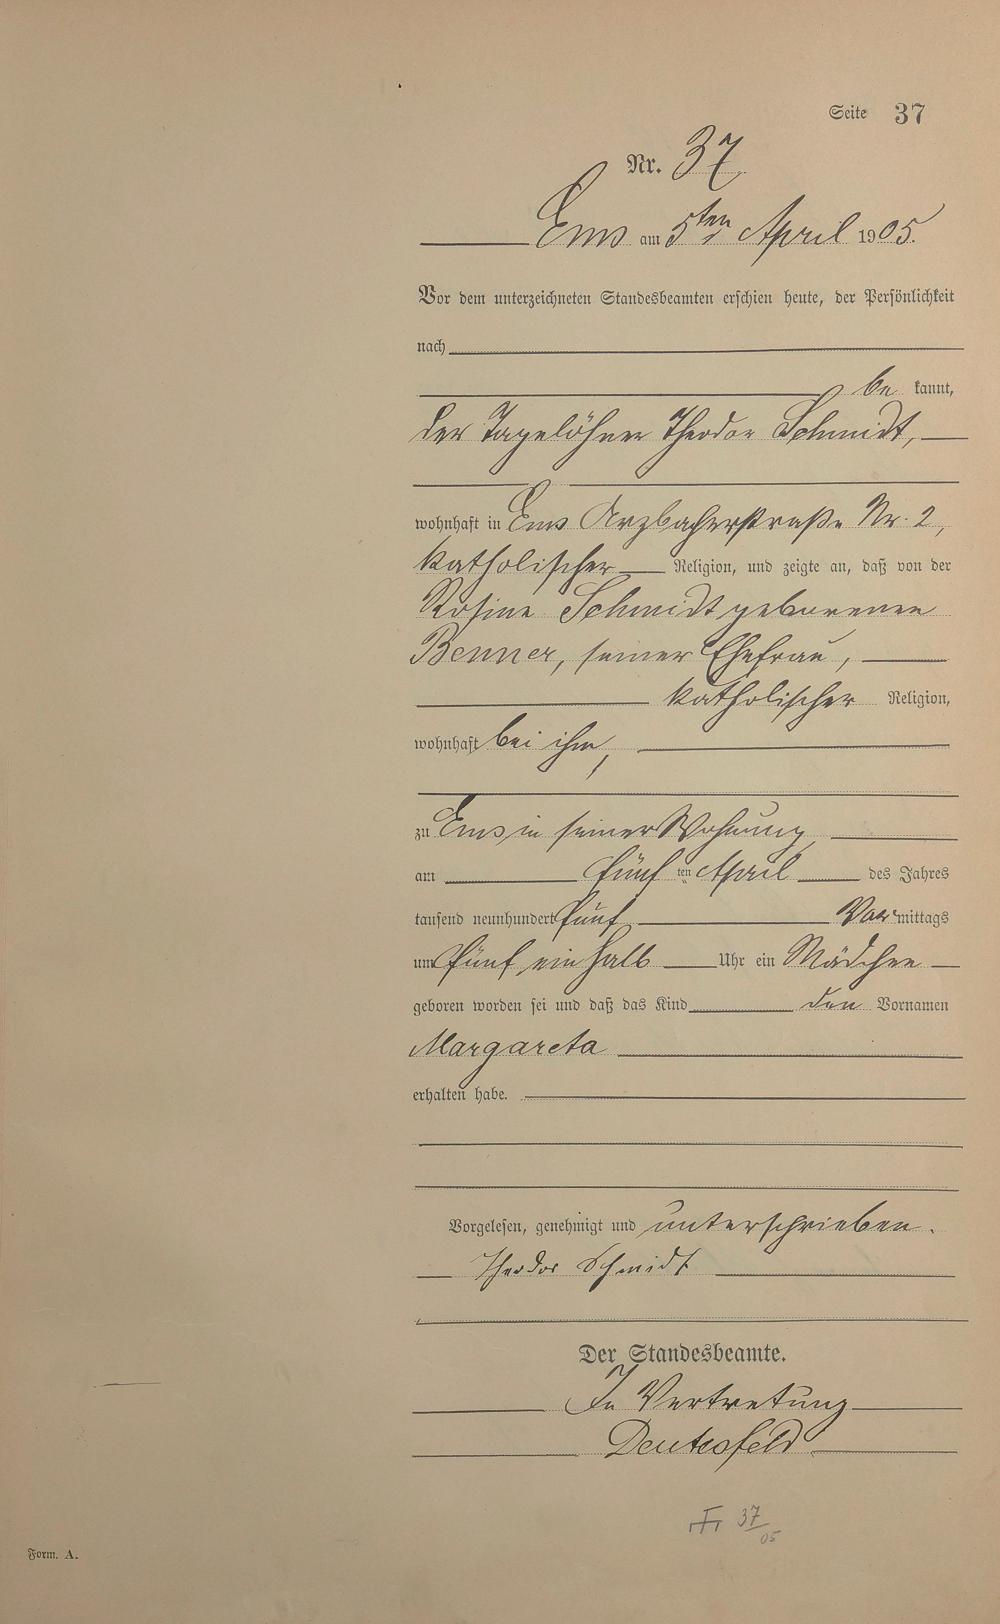 Seite 37
Nr. 37
Ems am 5ten April 1905.
Vor dem unterzeichneten Standesbeamten erschien heute, der Persönlichkeit
nach
be kannt,
der Tagelöhner Theodor Schmidt,
wohnhaft in Ems Arzbacherstraße Nr. 2,
katholischer Religion, und zeigte an, daß von der
Rosine Schmidt geborenen
Benner, seiner Ehefrau,
katholischer Religion,
wohnhaft bei ihm,
zu Ems in seiner Wohnung
am fünf ten April des Jahres
tausend neunhundert fünf Vormittags
um fünf ein halb Uhr ein Mädchen
geboren worden sei und daß das Kind den Vornamen
Margareta
erhalten habe.
Vorgelesen, genehmigt und unterschrieben.
Theodor Schmidt
Der Standesbeamte.
In Vertretung
37/05
Form. A.